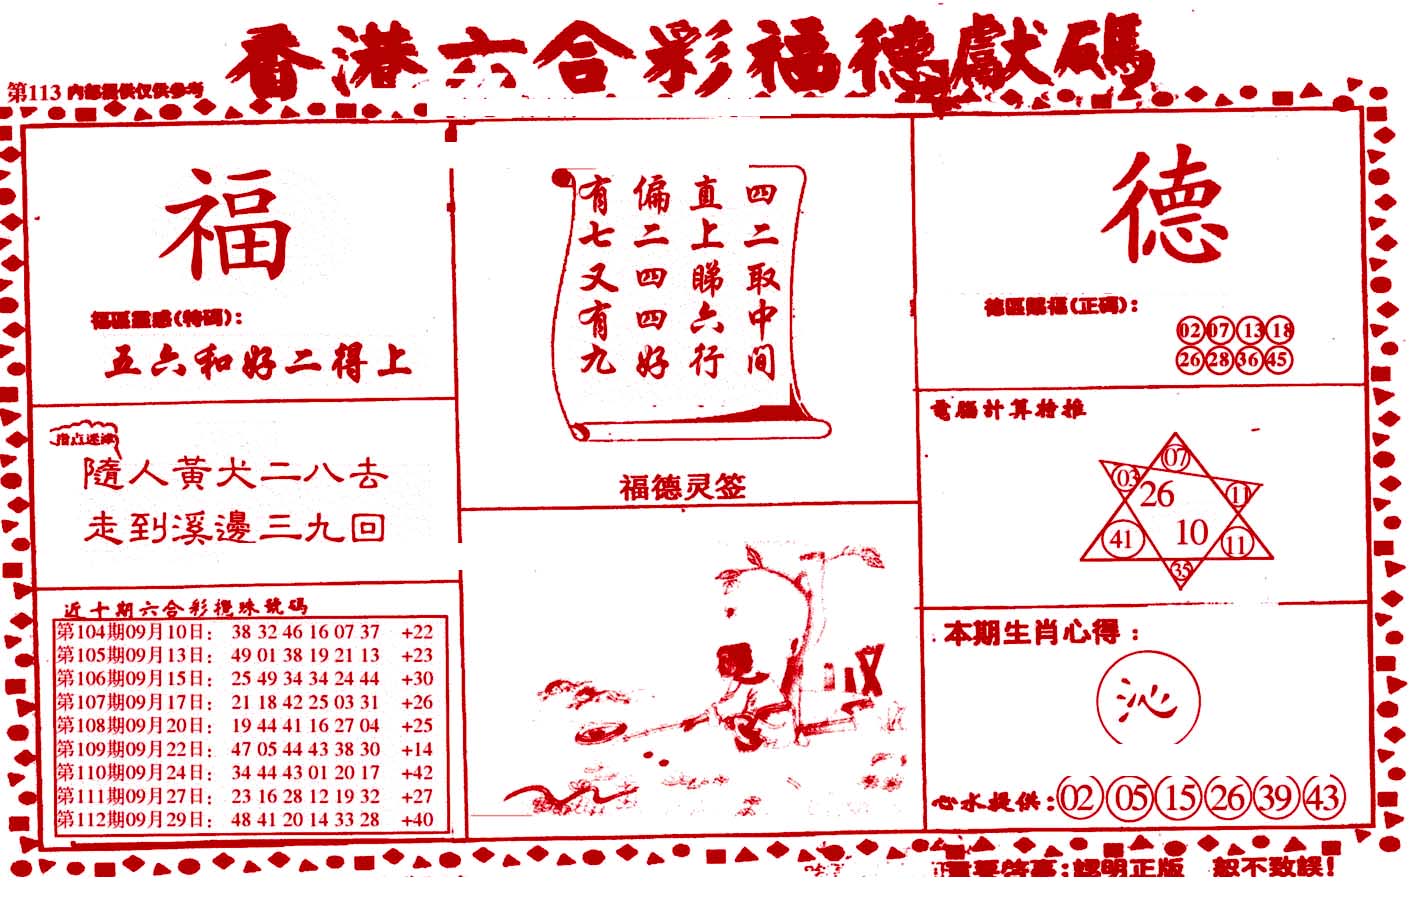 香港六合彩福德獻碼
第113 内部提供仅供参考
福
福區靈感(特碼):
五六和好二得上
指点迷津
隨人黃犬二八去
走到溪邊三九回
近十期六合彩攪珠號碼
第104期09月10日: 38 32 46 16 07 37 +22
第105期09月13日: 49 01 38 19 21 13 +23
第106期09月15日: 25 49 34 34 24 44 +30
第107期09月17日: 21 18 42 25 03 31 +26
第108期09月20日: 19 44 41 16 27 04 +25
第109期09月22日: 47 05 44 43 38 30 +14
第110期09月24日: 34 44 43 01 20 17 +42
第111期09月27日: 23 16 28 12 19 32 +27
第112期09月29日: 48 41 20 14 33 28 +40
四二取中间
直上睇六行
偏二四四好
有七又有九
福德灵签
德
德區賜福(正碼):
02 07 13 18
26 28 36 45
電腦計算特推
07
03 26 11
41 10 11
35
本期生肖心得:
沁
心水提供: 02 05 15 26 39 43
重要啓事:認明正版 恕不致誤!